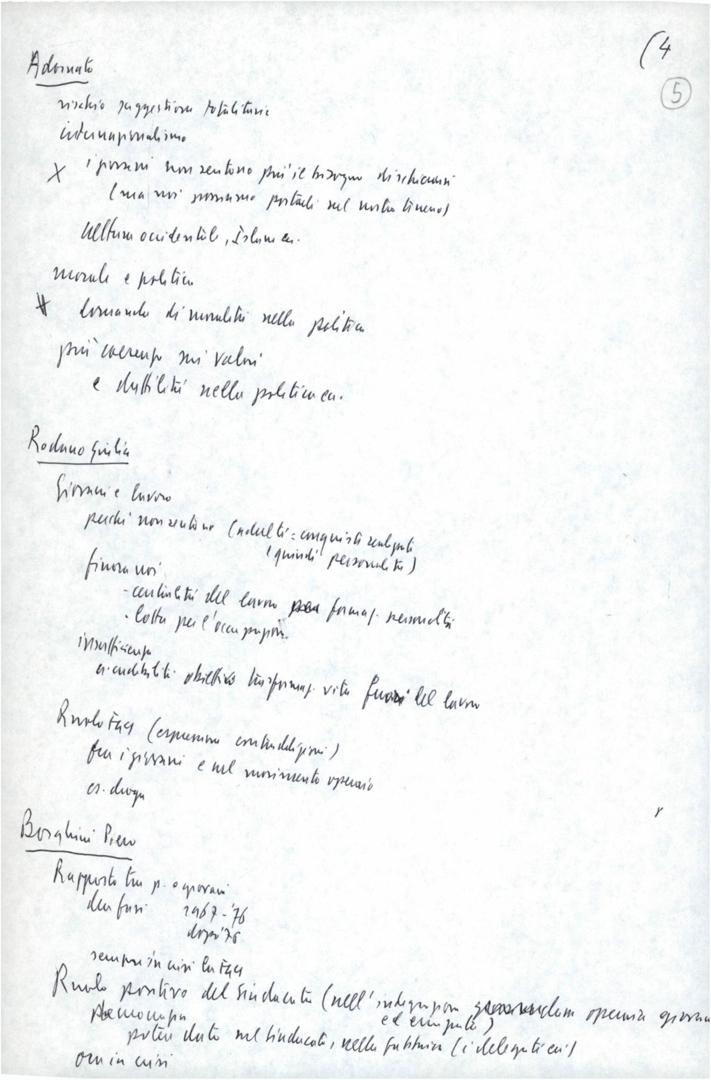 (4
5
Adornato
rischio suggestione totalitaria
internazionalismo
X i giovani non sentono più il bisogno di schierarsi
(ma noi possiamo portarli sul nostro terreno)
cultura occidentale, Islam ecc.
morale e politica
# domanda di moralità nella politica
più coerenza sui valori
e duttilità nella politica ecc.
Rodano Giulia
Giovani e lavoro
perché non sentono (adulti = conquista
(quindi personalità)
finora noi
- centralità del lavoro per formaz. personalità
- lotta per l'occupazion.
insufficienza
credibilità obiettivo trasformaz. vita fuori del lavoro
Ruolo Fgci (esprimere contraddizioni)
fra i giovani e nel movimento operaio
es. droga
Borghini Piero
Rapporto tra p. e giovani
due fasi 1967-'76
dopo '76
sempre in crisi la Fgci
Ruolo positivo del Sindacato (nell'integrazion operaia giovan
ed emigrati)
potere dato nel sindacato, nella fabbrica (i delegati ecc)
ora in crisi